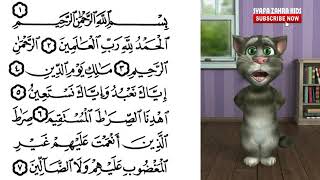 SYAFA ZAHRA KIDS
SUBSCRIBE NOW
بِسْمِ اللَّهِ الرَّحْمَٰنِ الرَّحِيمِ ١
الْحَمْدُ لِلَّهِ رَبِّ الْعَالَمِينَ ٢ الرَّحْمَٰنِ
الرَّحِيمِ ٣ مَالِكِ يَوْمِ الدِّينِ ٤
إِيَّاكَ نَعْبُدُ وَإِيَّاكَ نَسْتَعِينُ ٥
اهْدِنَا الصِّرَاطَ الْمُسْتَقِيمَ ٦ صِرَاطَ
الَّذِينَ أَنْعَمْتَ عَلَيْهِمْ غَيْرِ
الْمَغْضُوبِ عَلَيْهِمْ وَلَا الضَّالِّينَ ٧